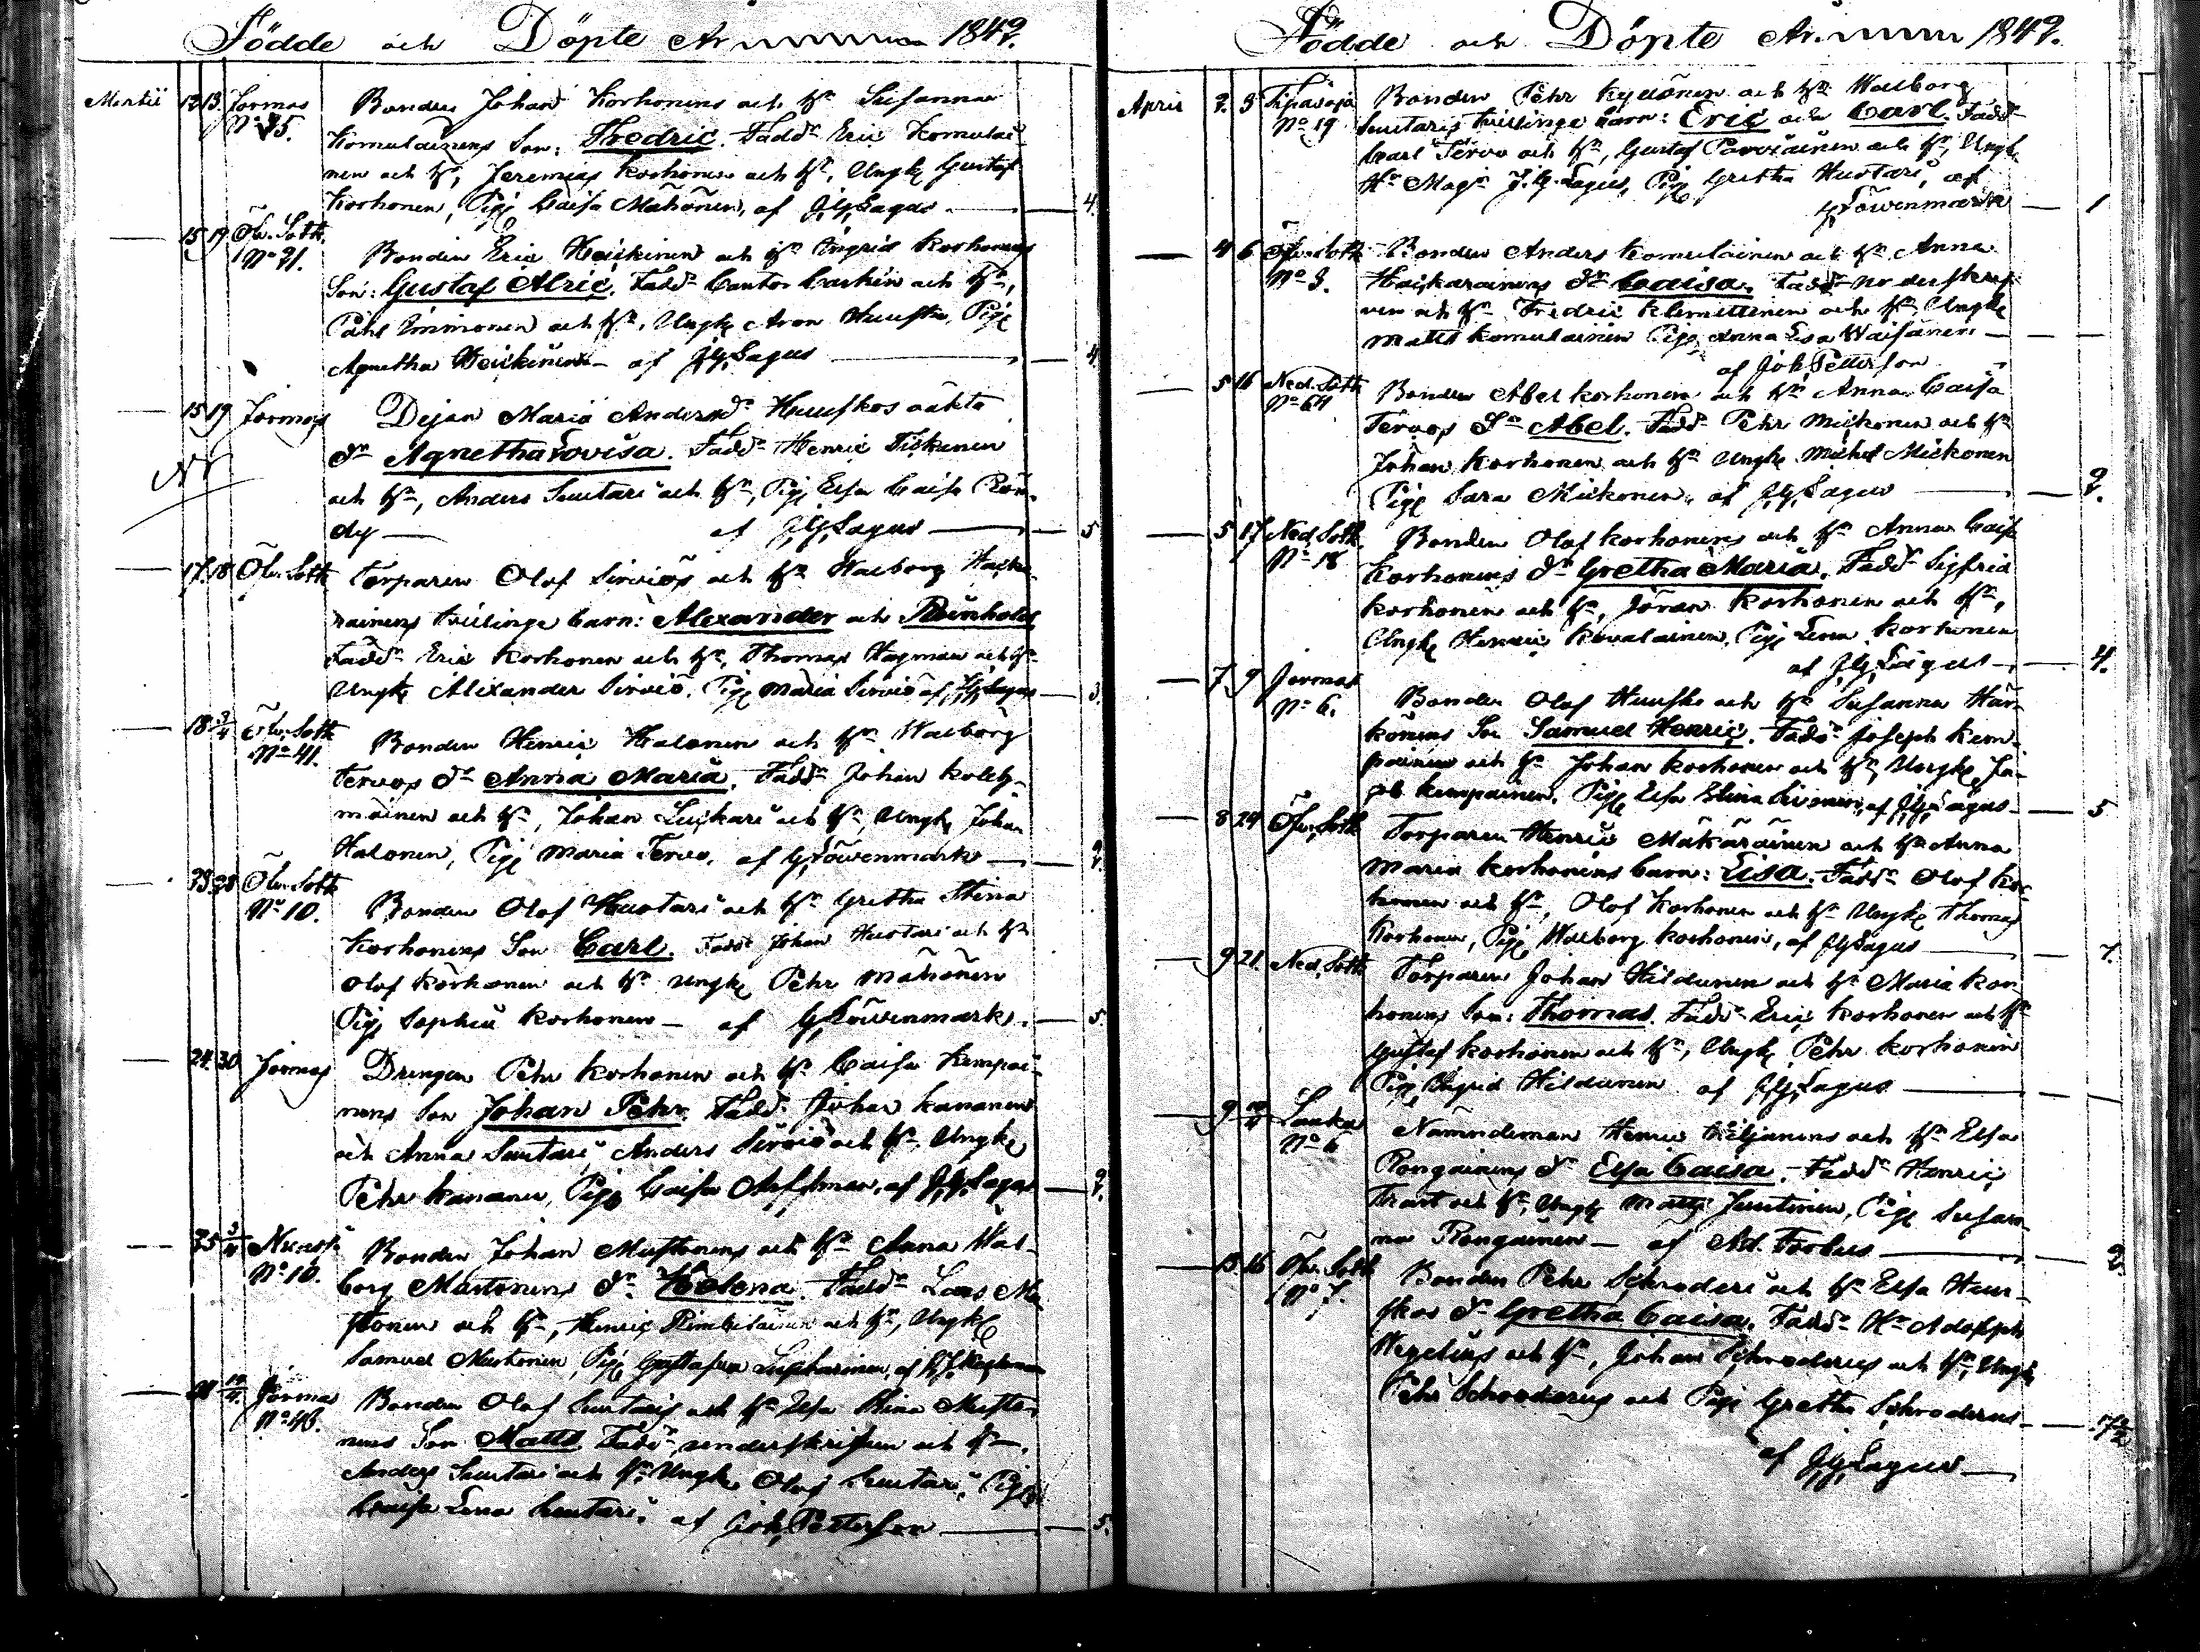 Födde och Döpte År 1842.
Martii 12 13. Jormas Bonden Johan Korhonens och H:n Susanna
N:o 75. Komulainens Son: Fredric. Fadd:r Eric Komulai-
nen och H:n, Jeremias Korhonen och H:n, Ungk. Gustaf
Korhonen, Pig. Caisa Mähönen, af J.G. Lagus — 4.
— 15 19 Öfv. Sotk. Bonden Eric Heickinens och H:n Ingrid Korhonens
N:o 21. Son: Gustaf Alric. Fadd:r Cantor Carlin och H:n,
Påhl Immonen och H:n, Ungk. Aron Huusko, Pig.
Agnetha Heickinen — af J.G. Lagus — 4.
— 15 19 Jormas Dejan Maria Andersd:r Huuskos oäkta
d:r Agnetha Lovisa. Fadd:r Henric Tiskinen
och H:n, Anders Suutari och H:n, Pig. Elsa Caisa
af J.G. Lagus — 5
— 17 18 Öfv. Sotk. Torparen Olof Sirviös och H:n Walborg
rainens tvillinge barn: Alexander och Reinhold
Fadd:r Eric Korhonen och H:n, Thomas Hagman och H:n
Ungk. Alexander Sirviö, Pig. Maria Sirviö af J.G. Lagus — 3.
— 18 3/4 Öfv. Sotk. Bonden Henric Halonen och H:n Walborg
N:o 41. Tervos d:r Anna Maria. Fadd:r Johan Koleh-
mainen och H:n, Johan Luckari och H:n, Ungk. Johan
Halonen, Pig. Maria Tervo, af G. Löwenmark — 2.
— 23 28 Öfv. Sotk. Bonden Olof Huotari och H:n Gretha Stina
N:o 10. Korhonens Son Carl. Fadd:r Johan Huotari och H:n
Olof Korhonen och H:n Ungk. Pehr Mähönen
Pig. Sophia Korhonen — af G. Löwenmark. — 5.
— 24. 30 Jormas Drengen Pehr Korhonen och H:n Caisa Kempai-
nens Son Johan Pehr. Fadd:r Johan Kananen
och Anna Suutari Anders Sirviö och H:n, Ungk.
Pehr Kananen, Pig. Caisa af J.G. Lagus — 2.
— 25 3/4 Bonden Johan Mustonens och H:n Anna Wal-
N:o 10. borg Mustonens d:r Helena. Fadd:r Lars Mu-
stonen och H:n, Henric och H:n, Ungk.
Samuel Mustonen, Pig.
— Jormas Bonden Olof Suutaris och H:n Elsa Stina Musto-
N:o 46. nens Son Matts. Fadd:r underskrifven och H:n,
Anders Suutari och H:n, Ungk. Olof Suutari, Pig.
Caisa Lena Suutari. af Joh. Petterson — 5.
Födde och Döpte År 1842.
April 2. 3 Tipasoja Bonden Pehr Kyllönen och H:n Walborg
N:o 19 Suutaris tvillinge barn: Eric och Carl. Fadd:r
Carl Tervo och H:n, Gustaf Parviainen och H:n, Ungk.
H:r Mag:r J.G. Lagus, Pig. Gretha Huotari, af
G. Löwenmark — 1
— 4 6 Öfv. Sotk. Bonden Anders Komulainen och H:n Anna
N:o 3. Heickarainens d:r Caisa. Fadd:r underskref-
ven och H:n Fredric Klemettinen och H:n, Ungk.
Matts Komulainen Pig. Anna Lisa Waisänen —
af Joh. Petterson
— 5 16 Ned. Sotk. Bonden Abel Korhonen och H:n Anna Caisa
N:o 64 Tervos S:n Abel. Fadd:r Pehr Mickonen och H:n
Johan Korhonen och H:n Ungk. Michel Mickonen
Pig. Sara Mickonen, af J.G. Lagus — 2.
— 5 17 Ned. Sotk. Bonden Olof Korhonens och H:n Anna Caisa
N:o 18 Korhonens d:r Gretha Maria. Fadd:r Sigfrid
Korhonen och H:n, Jöran Korhonen och H:n,
Ungk. Henric Kovalainen, Pig. Lena Korhonen
af J.G. Lagus — 4.
— 7 9 Jormas Bonden Olof Huusko och H:n Susanna Här-
N:o 6. könens Son Samuel Henric. Fadd:r Joseph Kem-
painen och H:n Johan Korhonen och H:n, Ungk. Ja-
cob Kempainen, Pig. Elsa Stina af J.G. Lagus — 5
— 8 24 Öfv. Sotk. Torparen Henric Mäkäräinen och H:n Anna
Maria Korhonens barn: Lisa. Fadd:r Olof Kor-
honen och H:n, Olof Korhonen och H:n Ungk. Thomas
Korhonen, Pig. Walborg Korhonen, af J.G. Lagus — 7.
— 9 21. Ned. Sotk. Torparen Johan Hildunen och H:n Maria Kor-
honens Son: Thomas. Fadd:r Eric Korhonen och H:n
Gustaf Korhonen och H:n, Ungk. Pehr Korhonen
Pig. Ingrid Hildunen af J.G. Lagus —
— 9 Laaka Nämndeman Henric Kiljunens och H:n Elsa
N:o 6 Rongainens d:r Elsa Caisa. Fadd:r Henric
Trast och H:n, Ungk. Matts Juntinen, Pig. Susan-
na Rongainen — af Ad. Forbus — 2.
— 13. 16 Öfv. Sotk. Bonden Pehr Schroderi och H:n Elsa Huu-
N:o 7. skos d:r Gretha Caisa. Fadd:r H:r Adolph
Wegelius och H:n, Johan Schroderus och H:n, Ungk.
Pehr Schroderus och Pig. Gretha Schroderus —
af J.G. Lagus —